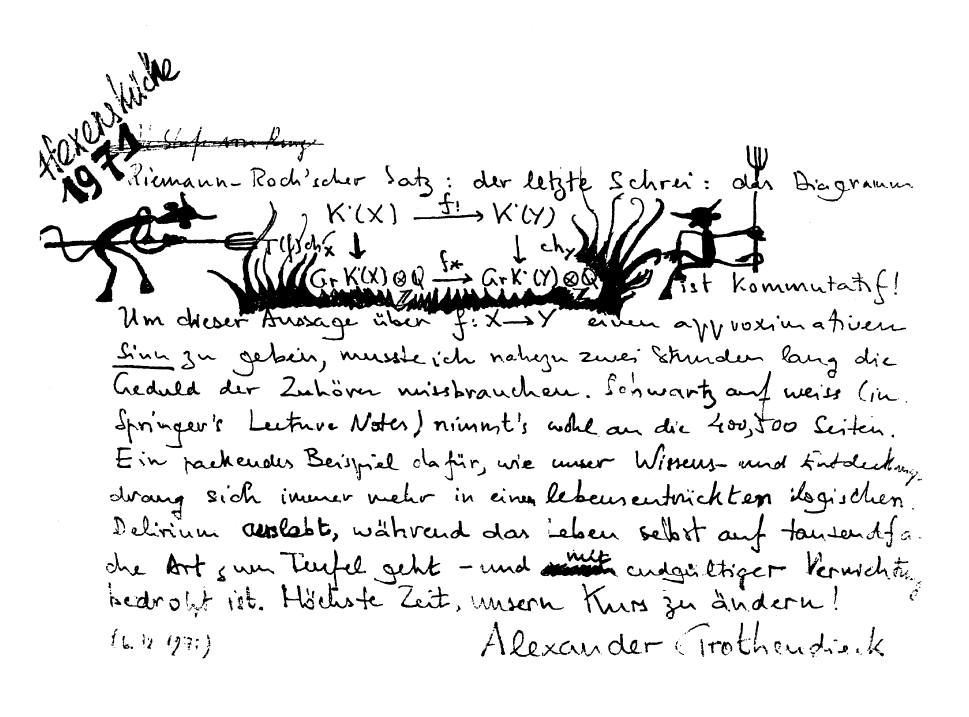 Hexenküche
1971
Riemann-Roch'scher Satz: der letzte Schrei: das Diagramm
K˙(X) f! → K˙(Y)
T(f)chX ↓ ↓ chY
Gr K˙(X)⊗ℤQ f* → Gr K˙(Y)⊗ℤQ
ist kommutatif!
Um dieser Aussage über f: X→Y einen approximativen
Sinn zu geben, musste ich nahezu zwei Stunden lang die
Geduld der Zuhörer missbrauchen. Schwartz auf weiss (in
Springer's Lecture Notes) nimmt's wohl an die 400, 500 Seiten.
Ein packendes Beispiel dafür, wie unser Wissens- und Entdeckungs
drang sich immer mehr in einem lebensentrückten logischen
Delirium auslebt, während das Leben selbst auf tausendfa
che Art zum Teufel geht - und mit endgültiger Vernichtung
bedroht ist. Höchste Zeit, unsern Kurs zu ändern!
Alexander Grothendieck